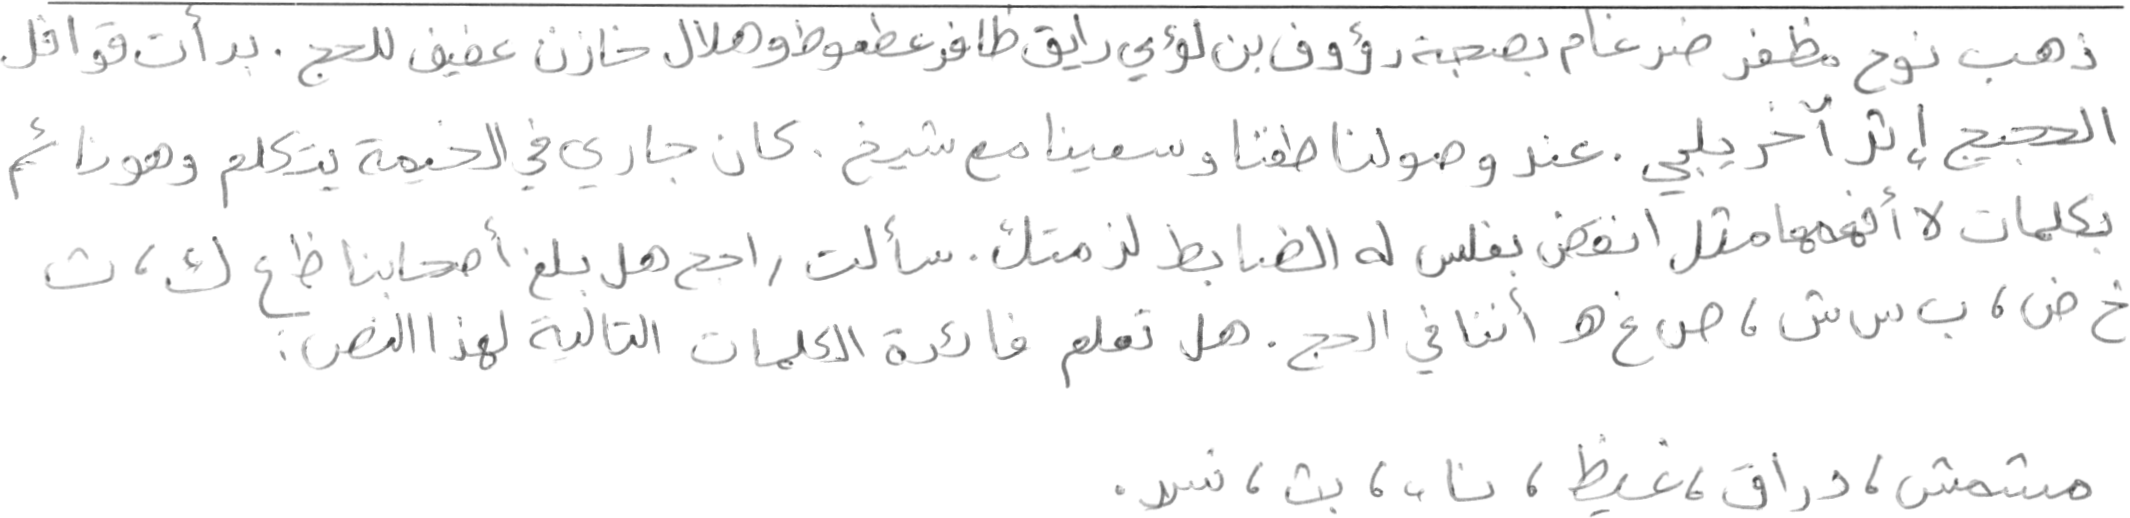 ذهب نوح مظفر ضرغام بصحبة رؤوف بن لؤي رايق ظافر عطعوط وهلال خازن عفيف للحج . بدأت قوافل
الحجيج إثر آخر يلبي . عند وصولنا طفنا وسعينا مع شيخ . كان جاري في الخيمة يتكلم وهو نائم
بكلمات لا أفهمها مثل انفض بفلس له الضابط لزمتك . سألت راجح هل بلغ أصحابنا ظ ع ك ، ث
خ ض ، ب س ش ، ص غ ه أننا في الحج . هل تعلم فائدة الكلمات التالية لهذا النص :
مشمش ، دراق ، غيظ ، ناء ، بث ، نسلا .